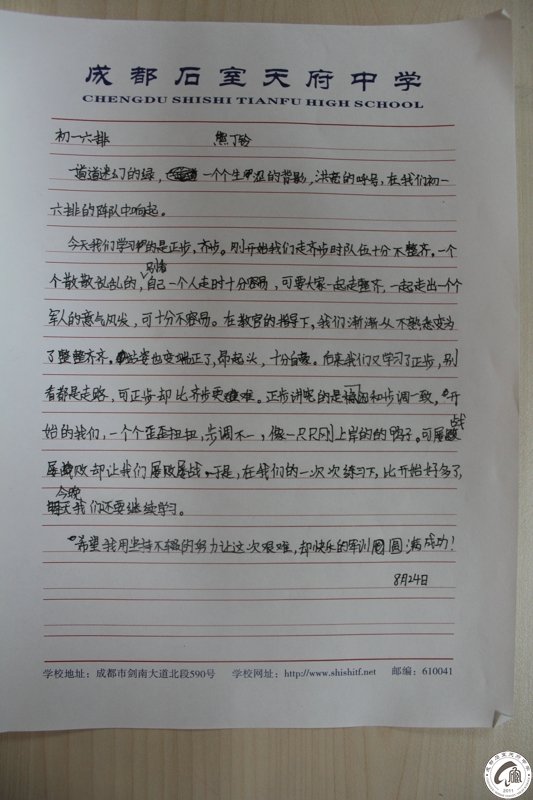 成都石室天府中学
CHENGDU SHISHI TIANFU HIGH SCHOOL
初一六排 熊丁铃
一道道迷幻的绿，一个个生涩的背影，洪亮的呼号，在我们初一
六排的阵队中响起。
今天我们学习的是正步，齐步。刚开始我们走齐步时队伍十分不整齐。一个
个散散乱乱的，别看自己一个人走时十分容易，可要大家一起走整齐，一起走出一个个
军人的意气风发，可十分不容易。在教官的指导下，我们渐渐从不熟悉变为
了整整齐齐。站姿也变端正了，昂起头，十分自豪。后来我们又学习了正步，别
看都是走路，可正步却比齐步更难。正步讲究的是和步调一致，开
始的我们，一个个歪歪扭扭，步调不一，像一只只刚上岸的的鸭子。可屡战
屡败却让我们屡败屡战，于是，在我们的一次次练习下，比开始好多了，
今晚我们还要继续学习。
希望我用坚持不懈的努力让这次艰难，却快乐的军训圆满成功！
8月24日
学校地址：成都市剑南大道北段590号 学校网址：http://www.shishitf.net 邮编：610041
2011